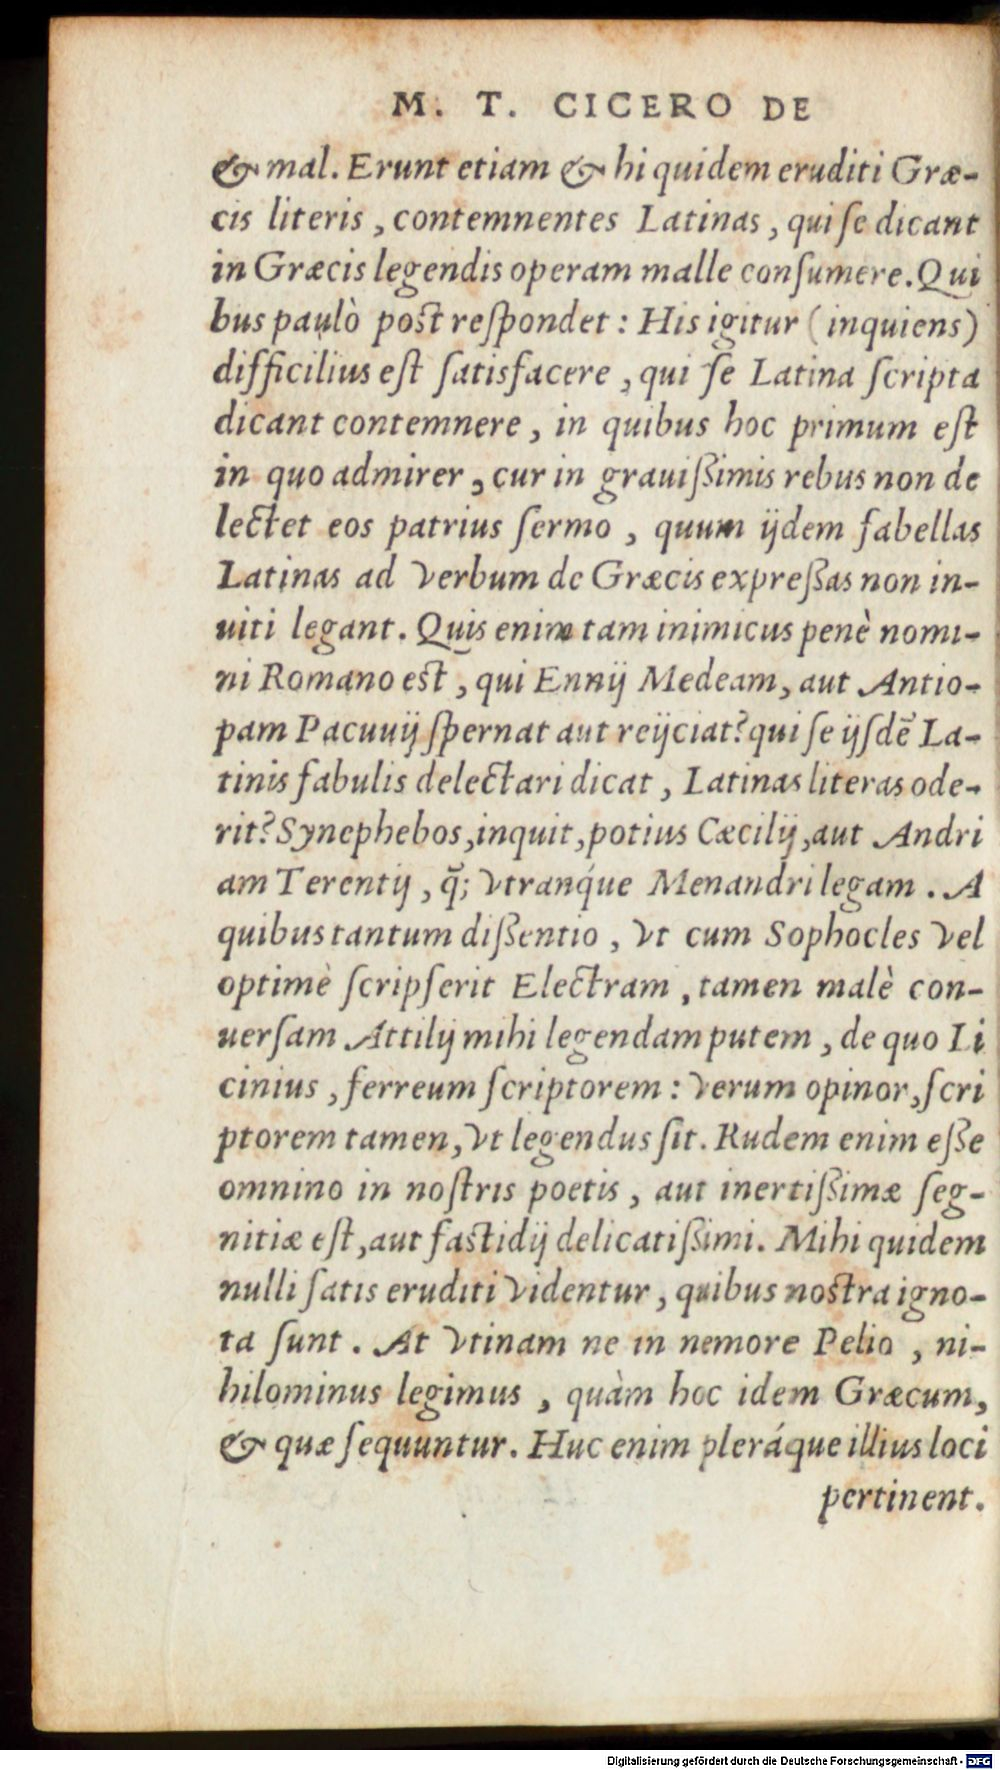 M. T. CICERO DE
& mal. Erunt etiam & hi quidem eruditi Græ-
cis literis, contemnentes Latinas, qui ſe dicant
in Græcis legendis operam malle conſumere. Qui
bus paulò poſt reſpondet: His igitur (inquiens)
difficilius eſt ſatisfacere, qui ſe Latina ſcripta
dicant contemnere, in quibus hoc primum eſt
in quo admirer, cur in grauiſsimis rebus non de
lectet eos patrius ſermo, quum ijdem fabellas
Latinas ad verbum de Græcis expreſsas non in-
uiti legant. Quis enim tam inimicus penè nomi-
ni Romano eſt, qui Ennij Medeam, aut Antio-
pam Pacuuij ſpernat aut reijciat? qui ſe ijſdē La-
tinis fabulis delectari dicat, Latinas literas ode-
rit? Synephebos, inquit, potius Cæcilij, aut Andri
am Terentij, q̃; vtranq́ue Menandri legam. A
quibus tantum diſsentio, vt cum Sophocles vel
optimè ſcripſerit Electram, tamen malè con-
uerſam Attilij mihi legendam putem, de quo Li
cinius, ferreum ſcriptorem: verum opinor, ſcri
ptorem tamen, vt legendus ſit. Rudem enim eſse
omnino in noſtris poetis, aut inertiſsimæ ſeg-
nitiæ eſt, aut faſtidij delicatiſsimi. Mihi quidem
nulli ſatis eruditi videntur, quibus noſtra igno-
ta ſunt. At vtinam ne in nemore Pelio, ni-
hilominus legimus, quàm hoc idem Græcum,
& quæ ſequuntur. Huc enim pleráque illius loci
pertinent.
Digitalisierung gefördert durch die Deutsche Forschungsgemeinschaft - DFG